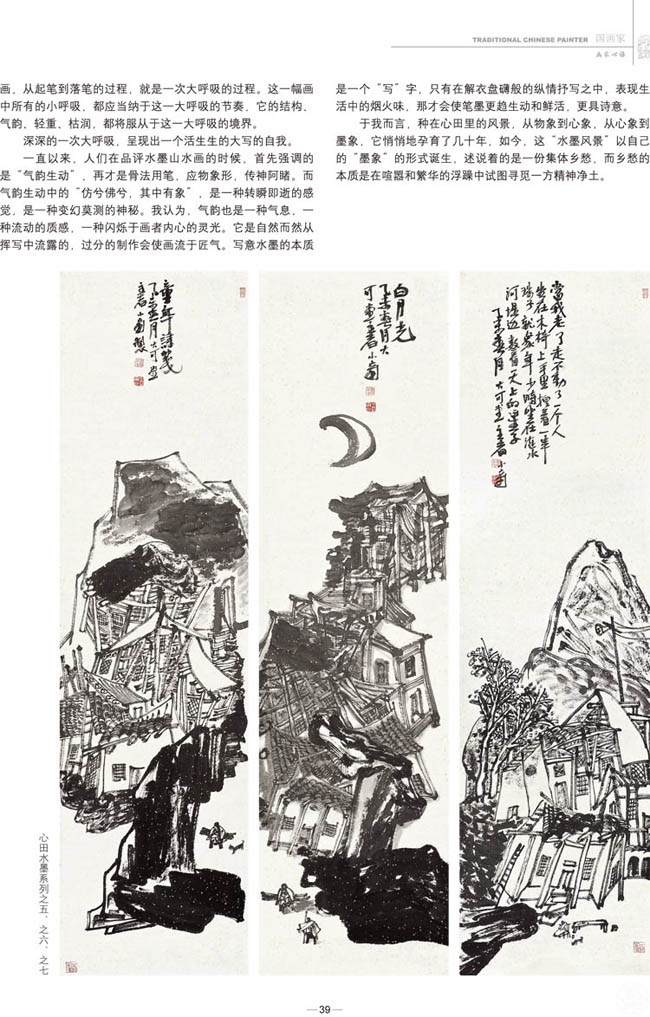 TRADITIONAL CHINESE PAINTER 国画家
画家心语
画，从起笔到落笔的过程，就是一次大呼吸的过程。这一幅画
中所有的小呼吸，都应当纳于这一大呼吸的节奏，它的结构、
气韵、轻重、枯润，都将服从于这一大呼吸的境界。
深深的一次大呼吸，呈现出一个活生生的大写的自我。
一直以来，人们在品评水墨山水画的时候，首先强调的
是“气韵生动”，再才是骨法用笔，应物象形，传神阿睹。而
气韵生动中的“仿兮佛兮，其中有象”，是一种转瞬即逝的感
觉，是一种变幻莫测的神秘。我认为，气韵也是一种气息，一
种流动的质感，一种闪烁于画者内心的灵光。它是自然而然从
挥写中流露的，过分的制作会使画流于匠气。写意水墨的本质
是一个“写”字，只有在解衣盘礴般的纵情抒写之中，表现生
活中的烟火味，那才会使笔墨更趋生动和鲜活，更具诗意。
于我而言，种在心田里的风景，从物象到心象，从心象到
墨象，它悄悄地孕育了几十年，如今，这“水墨风景”以自己
的“墨象”的形式诞生，述说着的是一份集体乡愁，而乡愁的
本质是在喧嚣和繁华的浮躁中试图寻觅一方精神净土。
童年诗笺
白月光
當我老了走不動了一个人
坐在木椅上手里
河堤边数着天上的星子
心田水墨系列之五、之六、之七
—39—